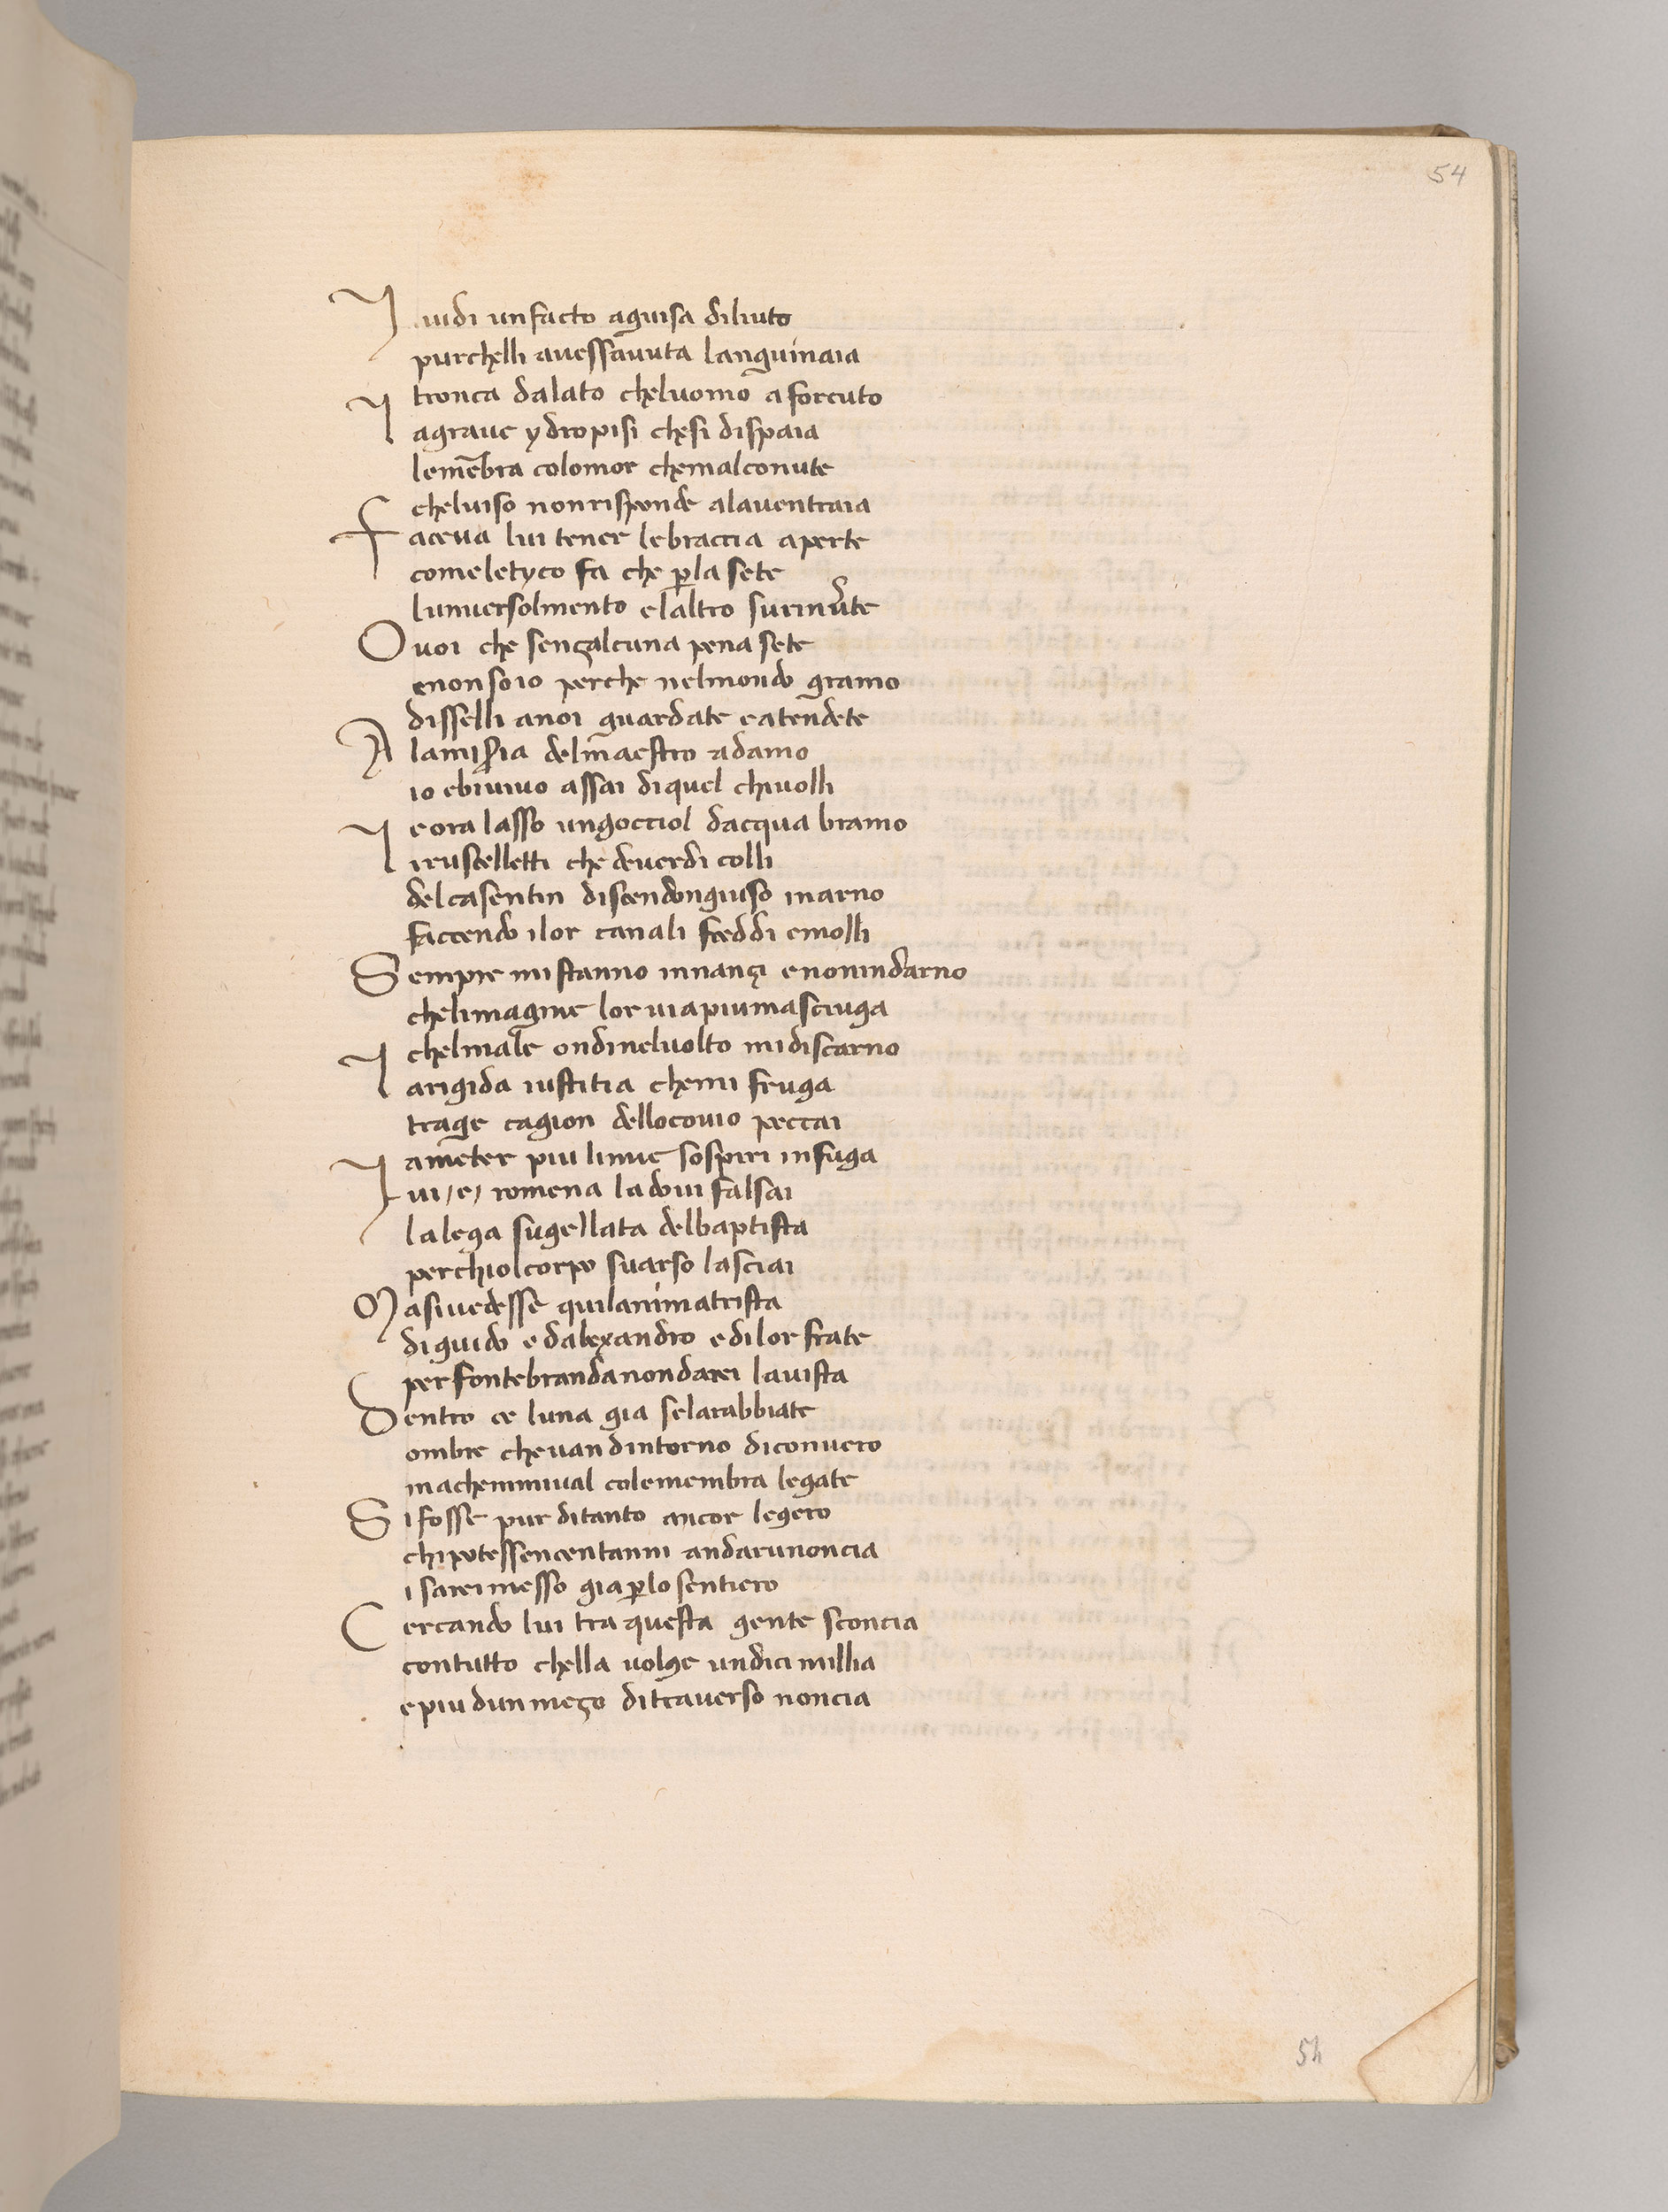 54
I uidi un facto aguisa diliuto
purchelli auessāuuta languinaia
tronca dalato cheluomo a forcuto
I agraue ydropisi chesi dispaia
lemēbra colomor chemalconute
cheluiso nonrisponde alauentraia
Faceua lui tener lebraccia aperte
comeletyco fa che ꝑla sete
lunuersolmento elaltro surinv̄te
O uoi che sença lcuna pena sete
enonsoio perche nelmondo gramo
disselli anoi guardate eatendete
A lamiẜia delmaestro adamo
io ebiuiuo assai diquel chiuolli
eora lasso ungocciol dacqua bramo
I iruscelletti che deuerdi colli
delcasentin discendonguiso inarno
faccendo ilor canali freddi emolli
Sempre mistanno innançi enonindarno
chelimagine lor uiapiumasciuga
chelmale ondinelvolto midiscarno
I arigida iustitia chemi fruga
trage cagion dellocouio peccai
ameter piu limie sospiri in fuga
I ui /e/ romena ladoui falsai
lalega sugellata delbaptista
perchiolcorpo suarso lasciai
Masiuedesse quilanimatrista
diguido edalexandro edilor frate
per fontebrandanondarei lauista
Dentro ce luna gia selarabbiate
ombre cheuan dintorno diconuero
machemmiual colemembra legate
S ifosse pur ditanto ancor legero
chipotessencentanni andarunoncia
isareimesso giaꝑlo sentiero
Cercando lui tra questa gente sconcia
contutto chella volge undici millia
epiudunmeço ditrauerso noncia
54